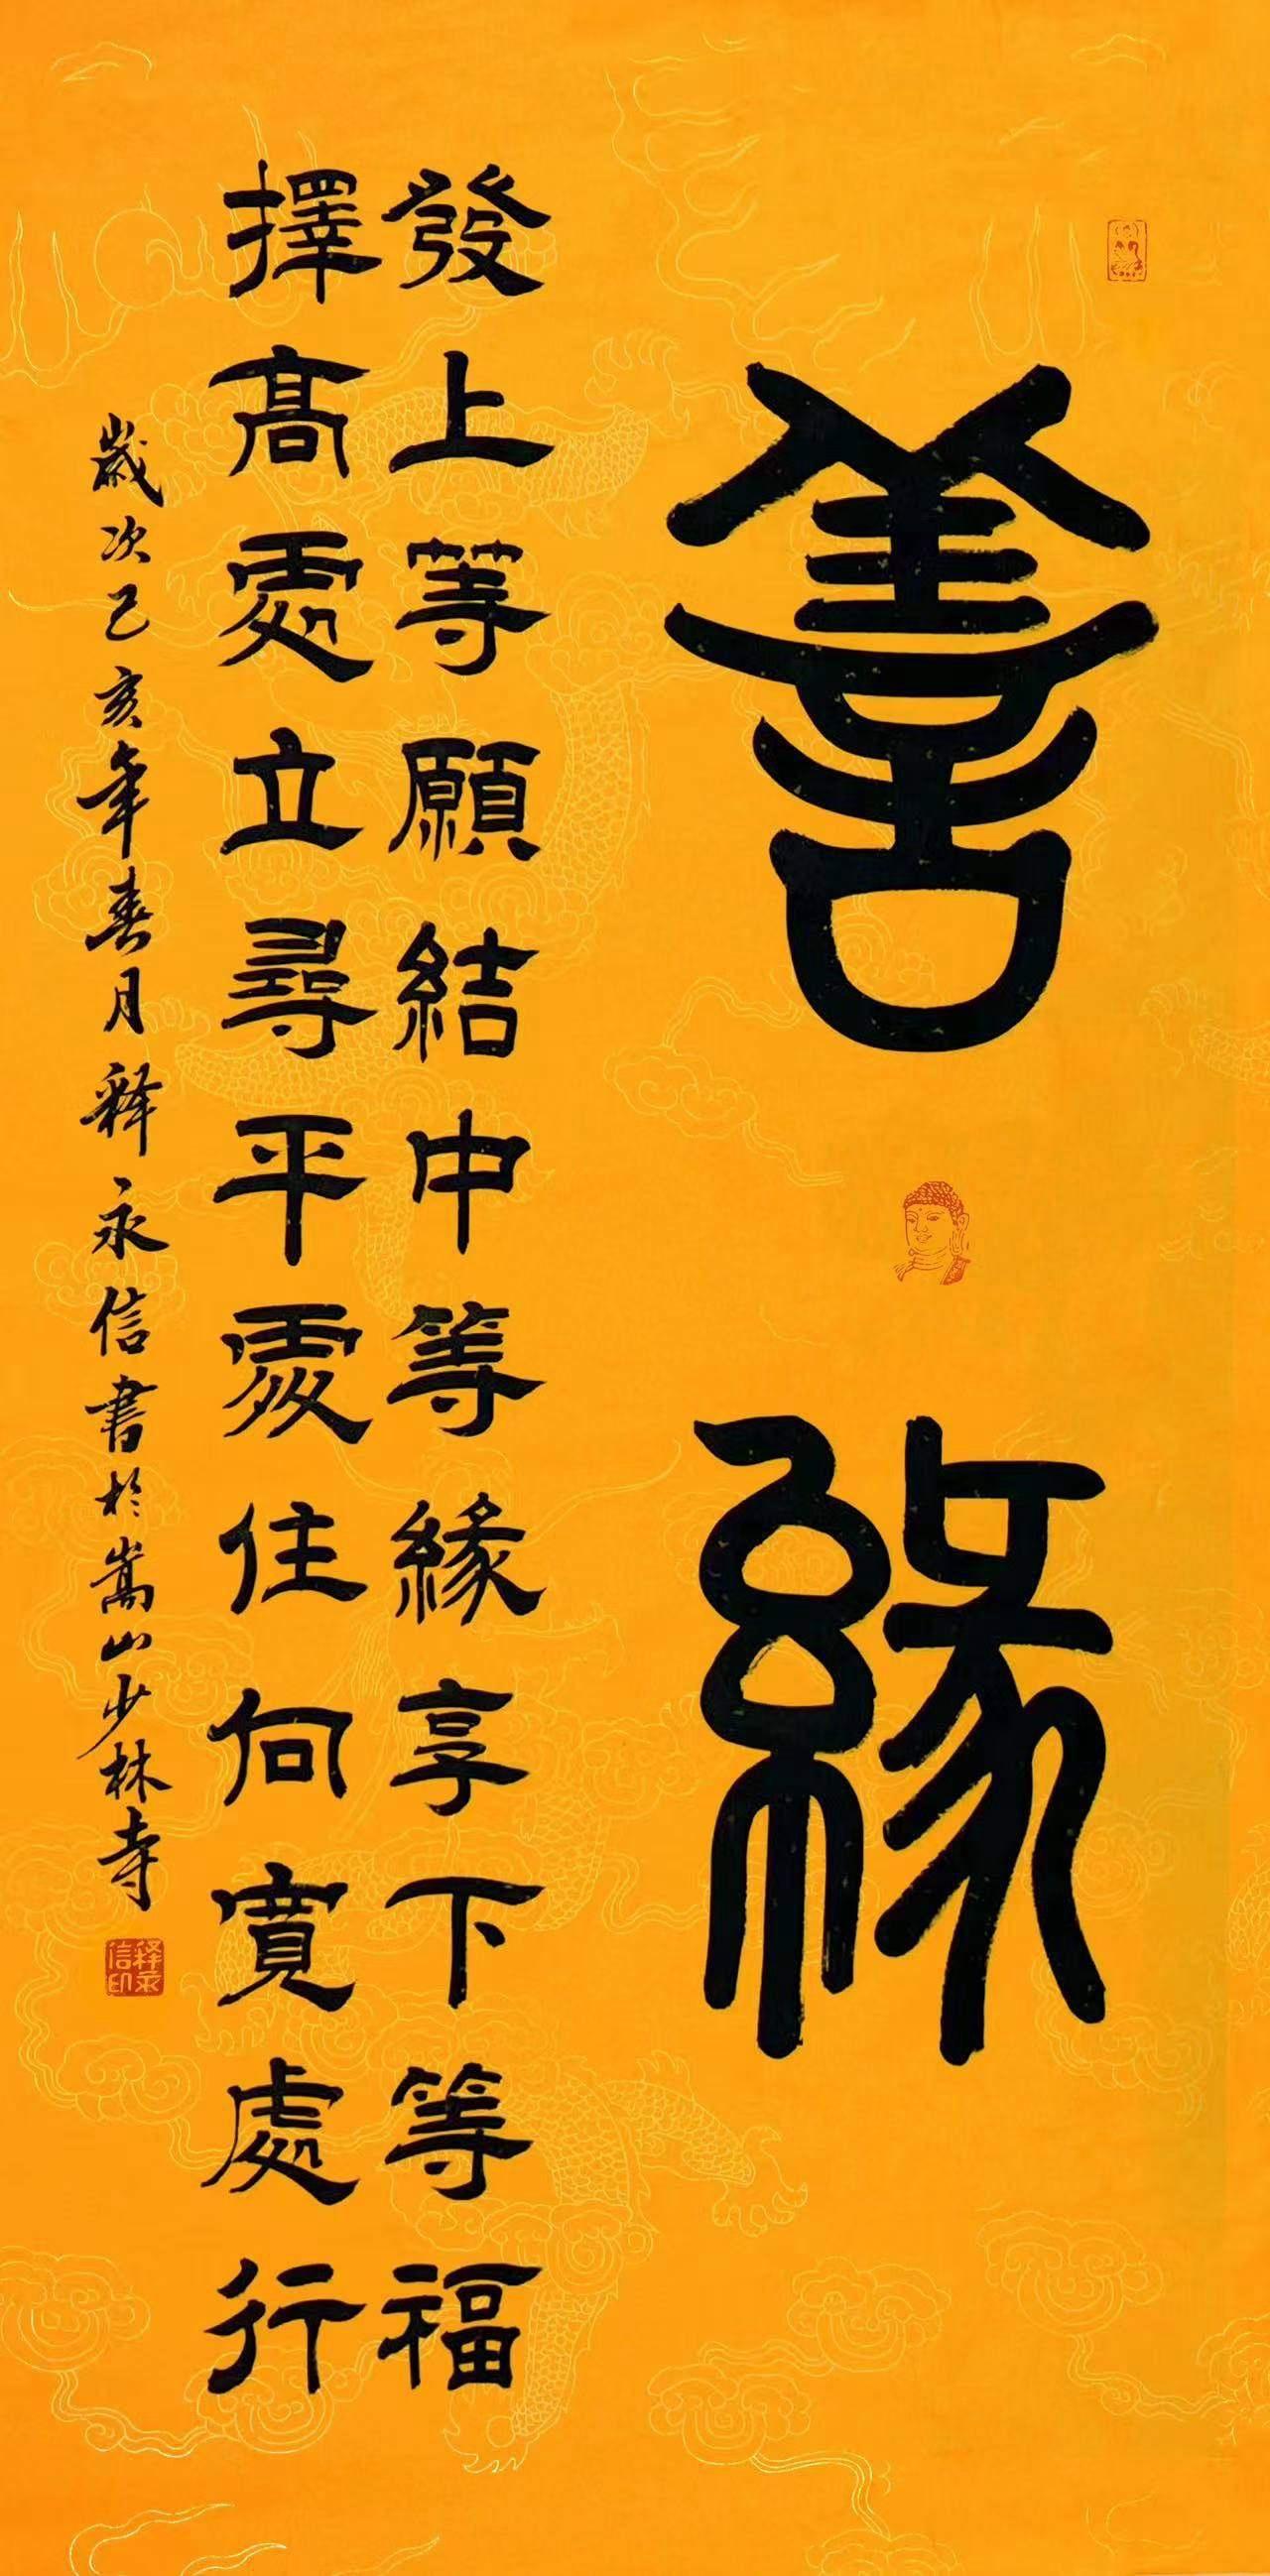 善緣
發上等願結中等緣享下等福
擇高處立尋平處住向寬處行
歲次己亥年春月释永信書於嵩山少林寺
释永信印